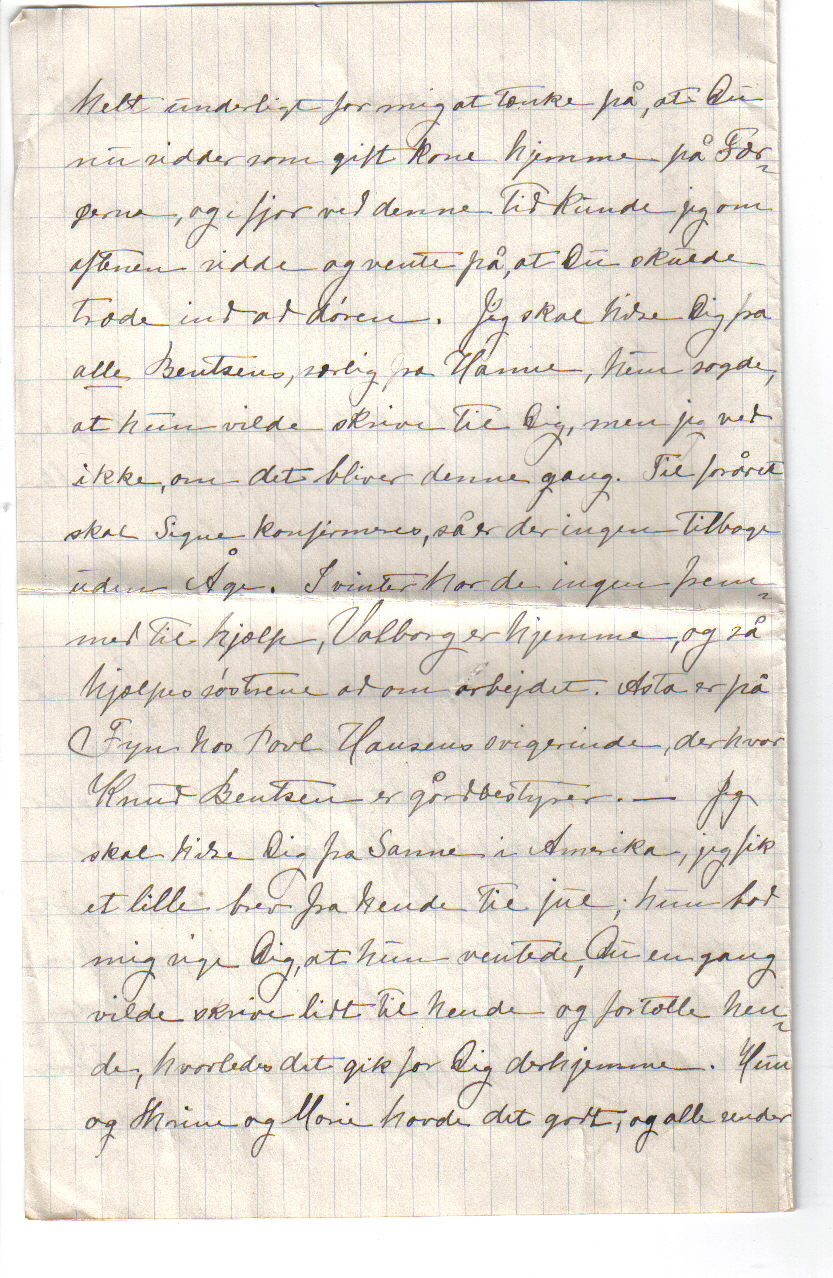 helt underligt for mig at tænke på, at Du
nu sidder som gift kone hjemme på Fær-
øerne, og i fjor ved denne tid kunde jeg om
aftenen sidde og vente på, at Du skulde
træde ind ad døren. Jeg skal hilse Dig fra
alle Bentsens, særlig fra Hanne, hun sagde,
at hun vilde skrive til Dig, men jeg ved
ikke, om det bliver denne gang. Til foråret
skal Signe konfirmeres, så er der ingen tilbage
uden Åge. I vinter har de ingen frem-
med til hjælp, Valborg er hjemme, og så
hjælpes søstrene ad om arbejdet. Asta er på
Fyn hos Povl Hansens svigerinde, der hvor
Knud Bentsen er gårdbestyrer. — Jeg
skal hilse Dig fra Sanne i Amerika, jeg fik
et lille brev fra hende til jul; hun bad
mig sige Dig, at hun ventede, Du en gang
vilde skrive lidt til hende og fortælle hen-
de, hvorledes det gik for Dig derhjemme. Hun
og Thrine og Marie havde det godt, og alle sender